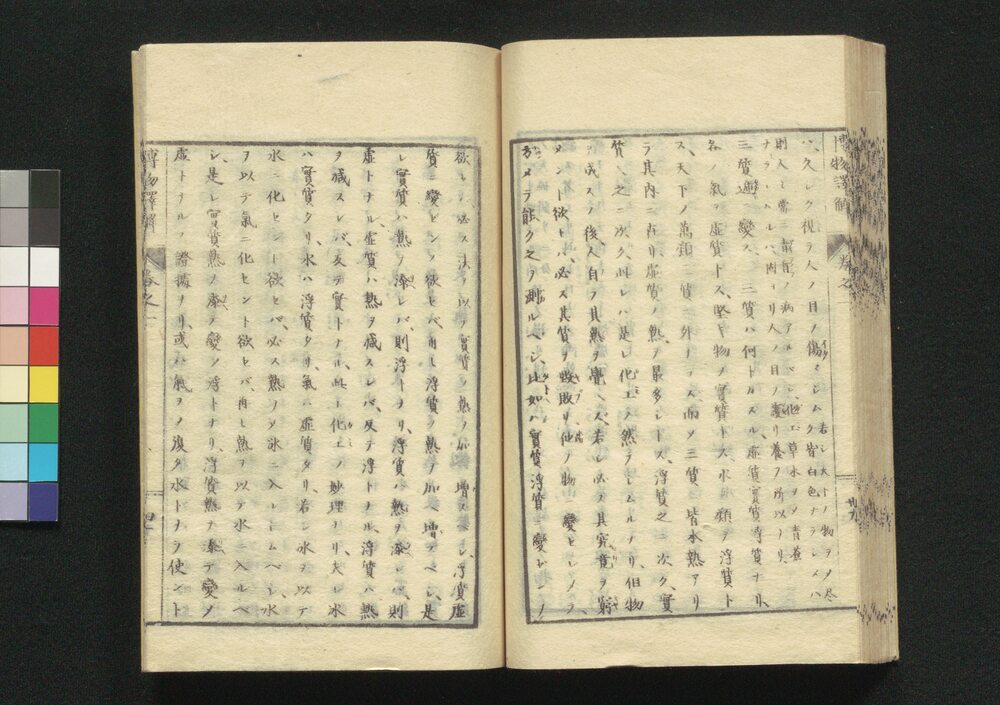 博物譯解 巻之一 廿九
若シ夫トノ物ヲメ尽
ハ久シク視ラ人ノ目ノ傷マシムク皆白色ナラシメハ
則人ニ雪ノ病アルベシ、化工草木ヲメ青蒼
ナラシムルハ肉ヨリ人ノ目ノ護リ養フ所以ノリ
三質遞ニ變ス、三質ハ何トカスル、虚質實質浮質ナリ、
各ノ氣ヲ虚質トス、堅キ物ノ實質トス水ノ類ヲ浮質ト
ス、天下ノ萬類三質ニ外ナラス、而メ三質ニ皆水熱アリ
ラ其内ニ在リ虚質ノ熱ヲ最多シトス、浮質之ニ次ク、實
質又之ニ次ク、此レハ是レ化工ノ然ラシムルナリ、但物
ヲ成スノ後人自ラ其熱ヲ覺ヘズ、若シ必ス其究竟ヲ窮
メント欲セハ必ス其質ヲ敗リ他ノ物ニ變セシノラ、
方メラ能ク之ノ測ルベシ、比如ハ實質浮質ニ變ゼンノ
欲レハ必ス法ノ以テ實質ノ熱ノ加ヘ増スベシ、浮質虚
質ニ變ゼンノ欲セバ、再ヒ浮質ノ熱ノ加ヘ増スベシ、是
レ實質ハ熱ヲ添レバ、則浮トナリ、浮質ハ熱ヲ添レバ、則
虚トナル、虚質ハ熱ヲ減スレバ、反テ浮トナル、浮質ハ熱
ヲ減スレバ、反テ實トナル、此レ化工ノ妙理ナリ、夫レ氷
ハ實質タリ、水ハ浮質タリ、氣ハ虚質タリ、若シ氷ヲ以テ
水ニ化セント欲セバ、必ス熱ノメ氷ニ入レシムベシ、水
ヲ以テ氣ニ化セント欲セバ、再ヒ熱ヲ以テ水ニ入ルベ
シ、是レ實質熱ヲ奪テ變ノ浮トナリ、浮質熱ヲ奪テ變ノ
虚トナルノ證據ナリ、或ハ氣ヲメ復タ水トナラ使ント
博物譯解 巻之一